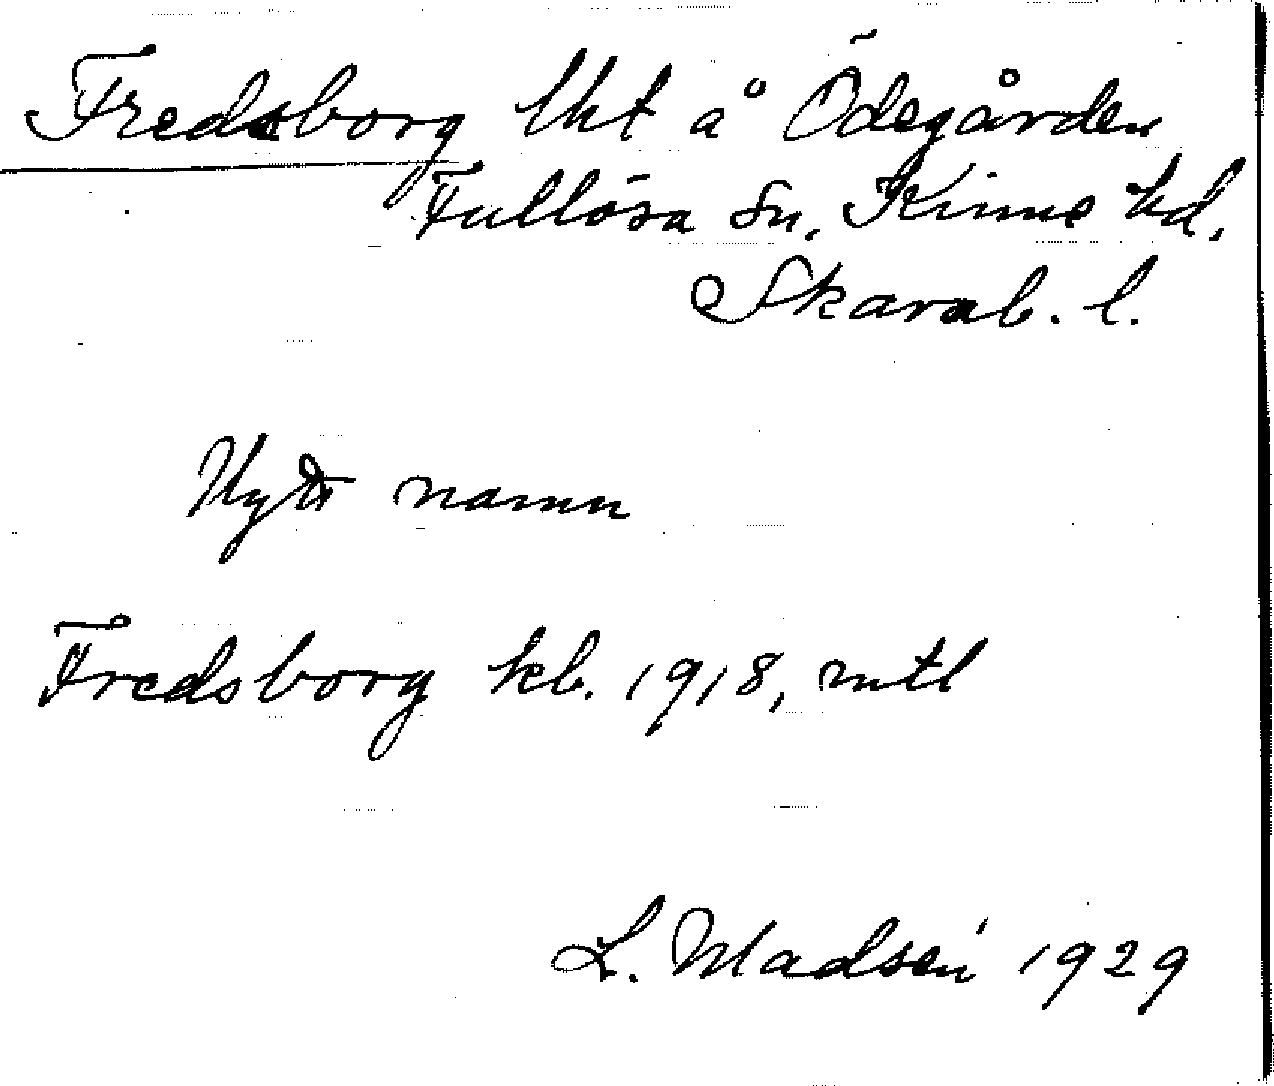 Fredsborg lht å Ödegården
Fullösa sn, Kinne hd,
Skarab. l.
Nytt namn
Fredsborg kb. 1918, mtl
L. Madsén 1929